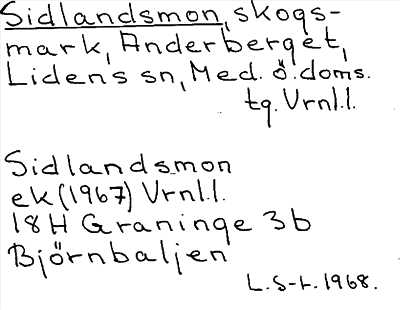 Sidlandsmon, skogs-
mark, Anderberget,
Lidens sn, Med. ö. doms.
tg. Vrnl.l.
Sidlandsmon
ek (1967) Vrnl.l.
18H Graninge 3b
Björnbaljen
L. S-t. 1968.